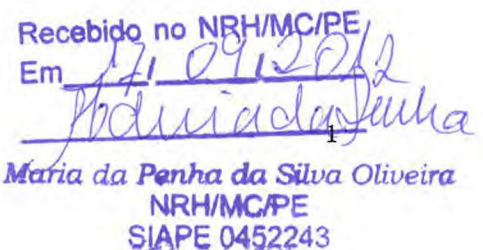 Recebido no NRH/MC/PE
Em 17/09/2012
1
Maria da Penha da Silva Oliveira
NRH/MC/PE
SIAPE 0452243